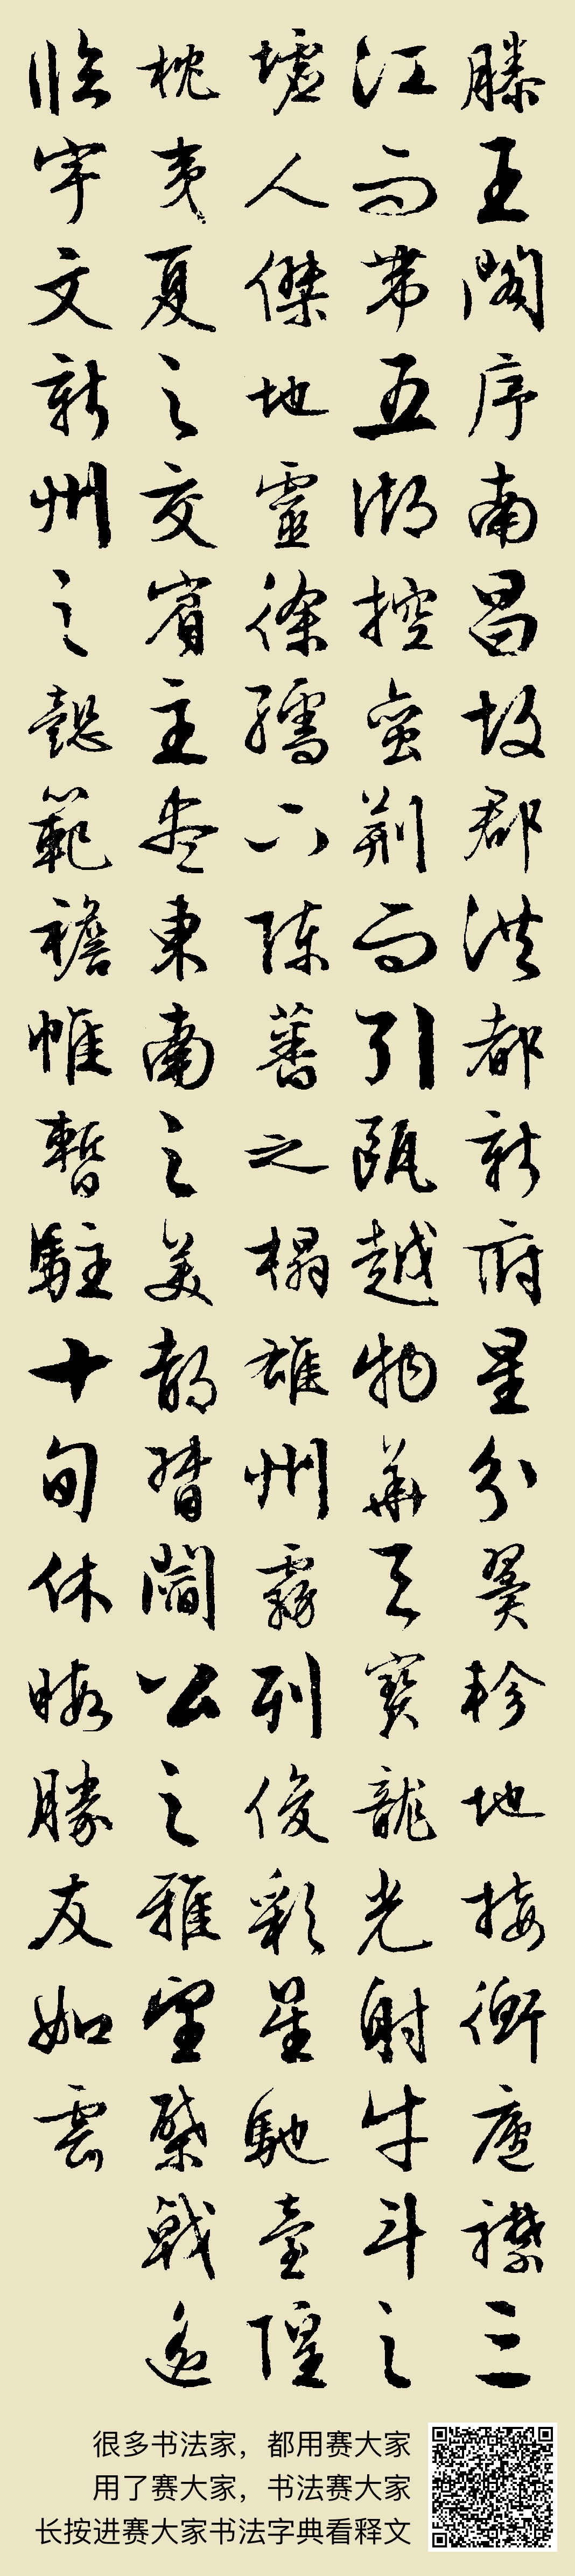 滕王閣序南昌故郡洪都新府星分翼軫地接衡廬襟三
江而帶五湖控蠻荊而引甌越物華天寶龍光射牛斗之
墟人傑地靈徐孺下陳蕃之榻雄州霧列俊彩星馳臺隍
枕夷夏之交賓主盡東南之美都督閻公之雅望棨戟遙
臨宇文新州之懿範襜帷暫駐十旬休暇勝友如雲
很多书法家，都用赛大家
用了赛大家，书法赛大家
长按进赛大家书法字典看释文